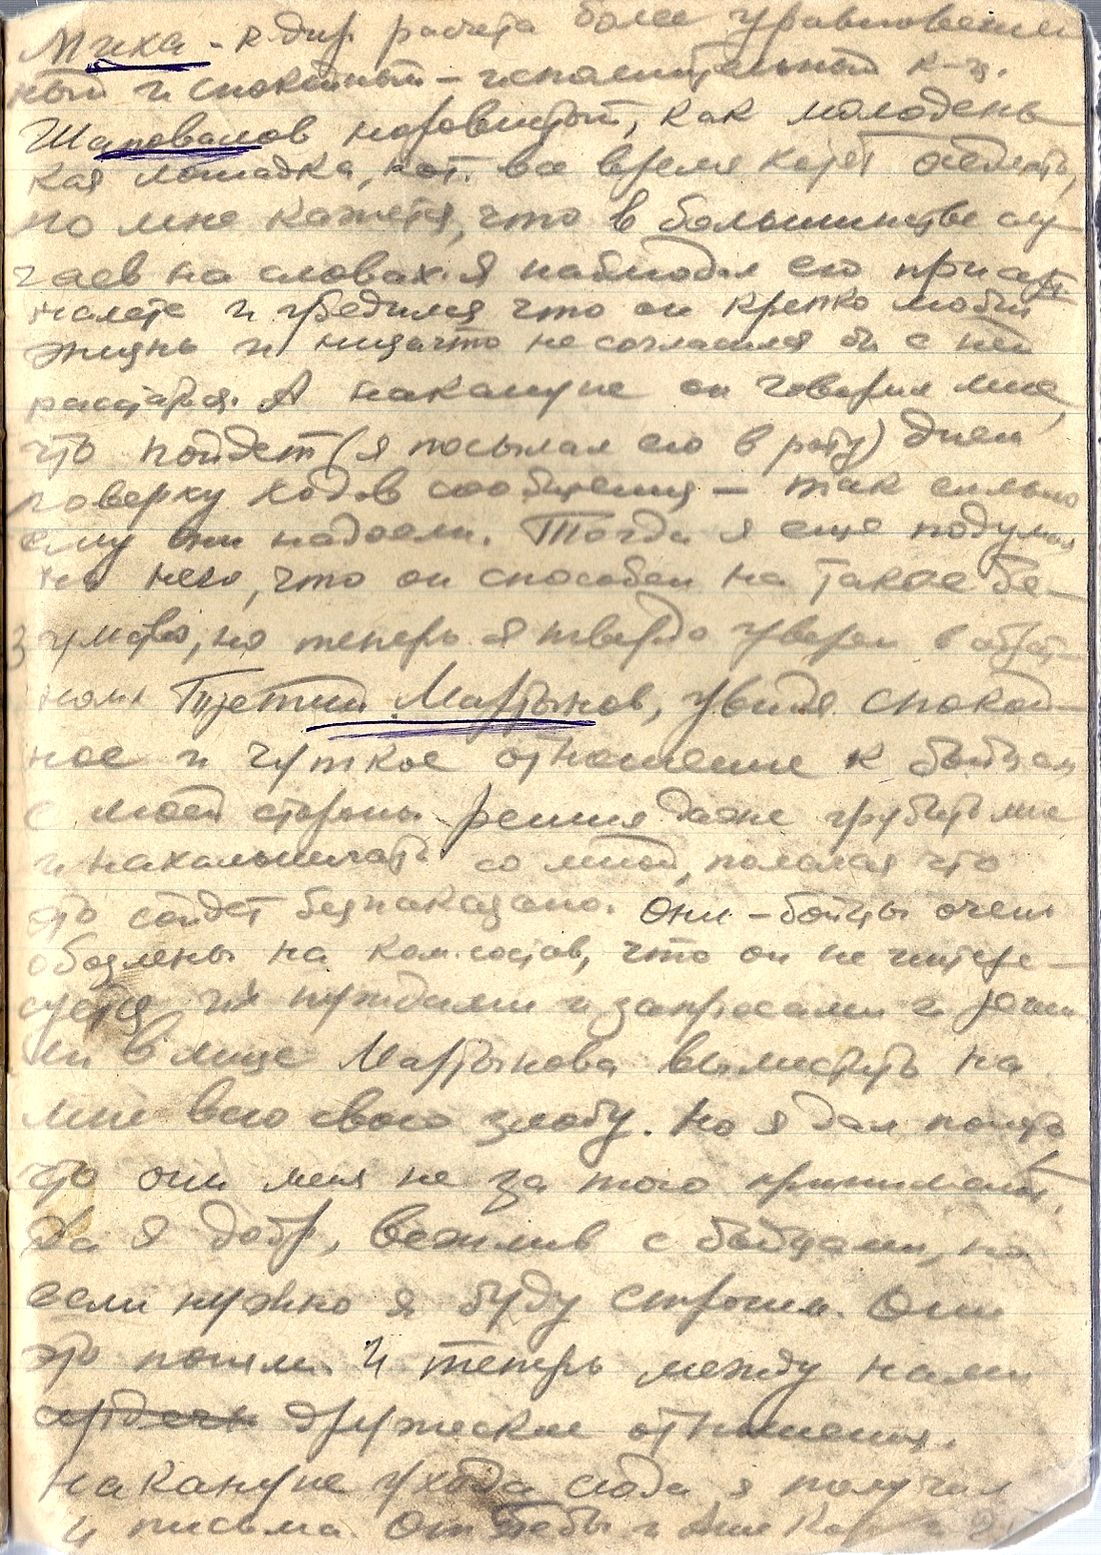 Мика - к-дир расчета более уравновешен
ный и спокойный – исполнительный к-р.
Шаповалов норовистый, как молодень
кая лошадка, кот. все время
но мне кажется, что в большинстве слу
чаев на словах. Я наблюдал его при арт.
налете и убедился что он крепко любит
жизнь и ни за что не согласился бы с ней
расстаться. А накануне он говорил мне,
что пойдет (я посылал его в роту) днем
поверху ходов сообщения – так сильно
ему они надоели. Тогда я еще подумал
на него, что он способен на такое бе-
зумство, но теперь я твердо уверен в обрат-
ном. Третий Мартынов, увидя спокой-
ное и чуткое отношение к бойцам
с моей стороны решил даже грубить мне
и нахальничать со мной, полагая что
это сойдет безнаказано. Они – бойцы очень
обозлены на ком.состав, что он не интере-
суется их нуждами и запросами и реши
ли в лице Мартынова выместить на
мне всю свою злобу. Но я дал понять
что они меня не за того принимают.
Да я добр, вежлив с бойцами, но
если нужно я буду строгим. Они
это поняли. И теперь между нами
дружеские отношения.
Накануне ухода сюда я получил
4 письма. От Тебы и